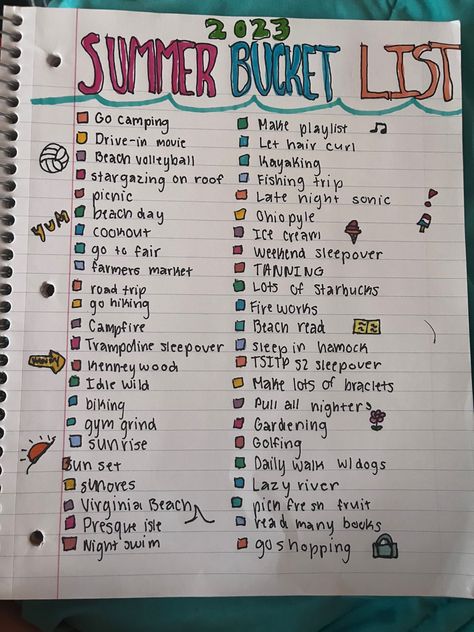 2023
SUMMER BUCKET LIST
Go camping
Drive-in movie
Beach volleyball
stargazing on roof
picnic
beach day
YUM
cookout
go to fair
farmers market
road trip
go hiking
Campfire
Trampoline sleepover
Kennywood
Idle wild
biking
gym grind
sunrise
sun set
smores
Virginia Beach
Presque isle
Night swim
Make playlist
Let hair curl
Kayaking
Fishing trip
Late night sonic
Ohiopyle
Ice cream
Weekend sleepover
TANNING
Lots of Starbucks
Fireworks
Beach read
sleep in hamock
TSITP S2 sleepover
Make lots of braclets
Pull all nighters
Gardening
Golfing
Daily walk w/dogs
Lazy river
pick fresh fruit
read many books
go shopping